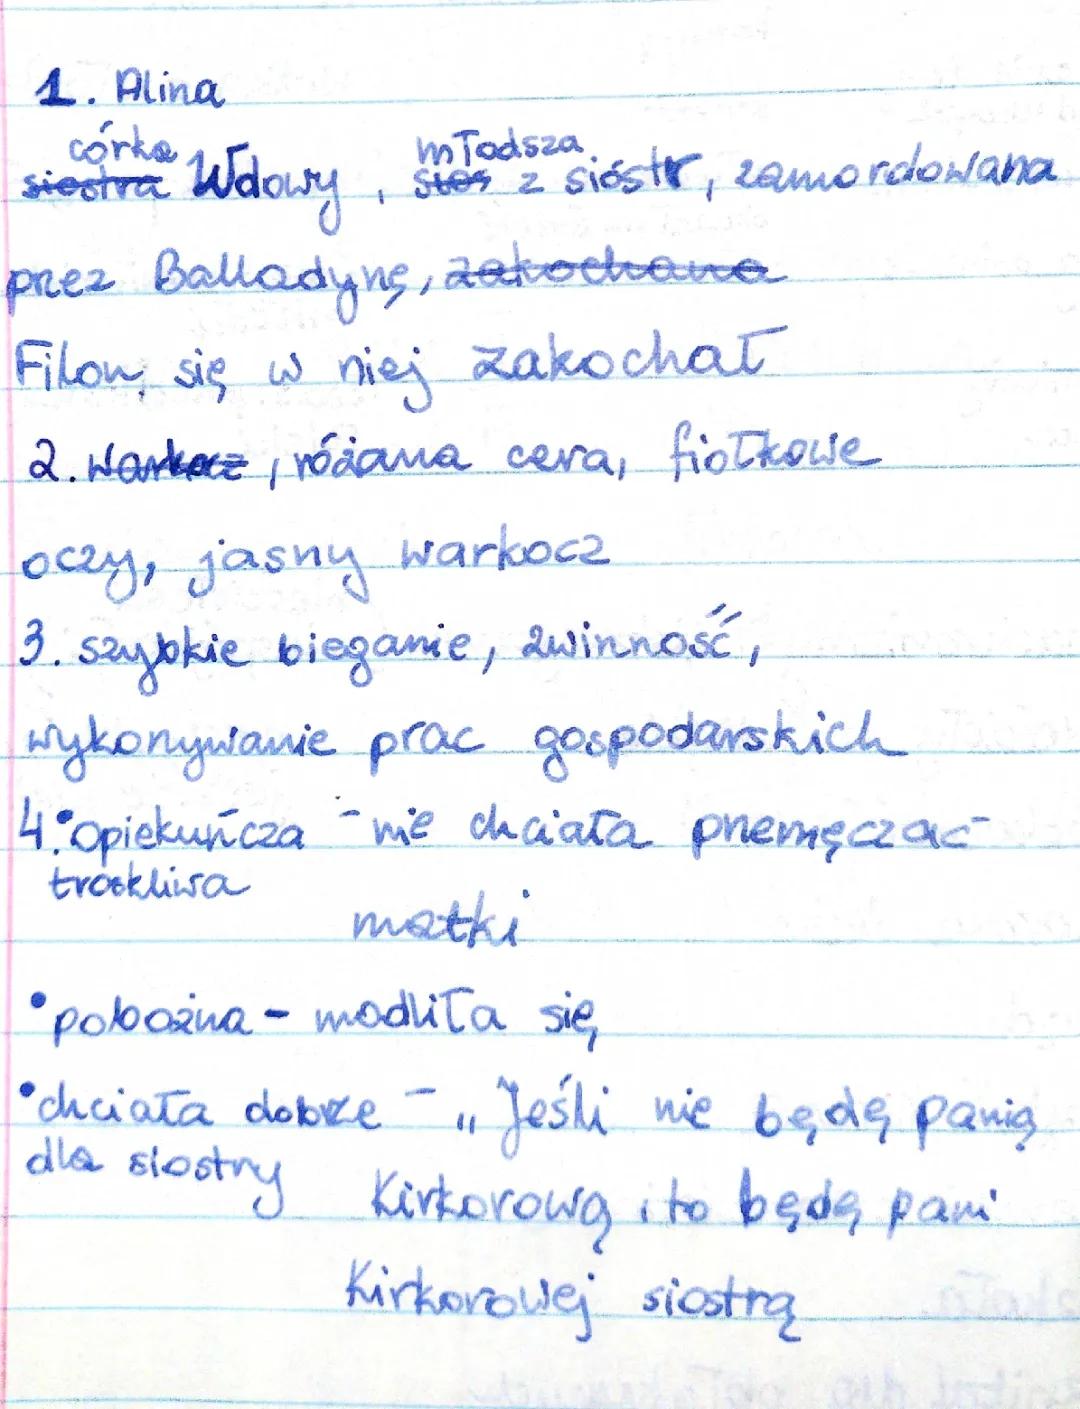 1. Alina
córka młodsza
siostra Wdowy, z sióstr, zamordowana
przez Balladynę, zakochana
Filon się w niej zakochał
2. warkocz, różana cera, fiołkowe
oczy, jasny warkocz
3. szybkie bieganie, zwinność,
wykonywanie prac gospodarskich
4. • opiekuńcza - nie chciała przemęczać
troskliwa
matki
• pobożna - modliła się
• chciała dobrze - „Jeśli nie będę panią
dla siostry
Kirkorową, to będę pani
Kirkorowej siostrą